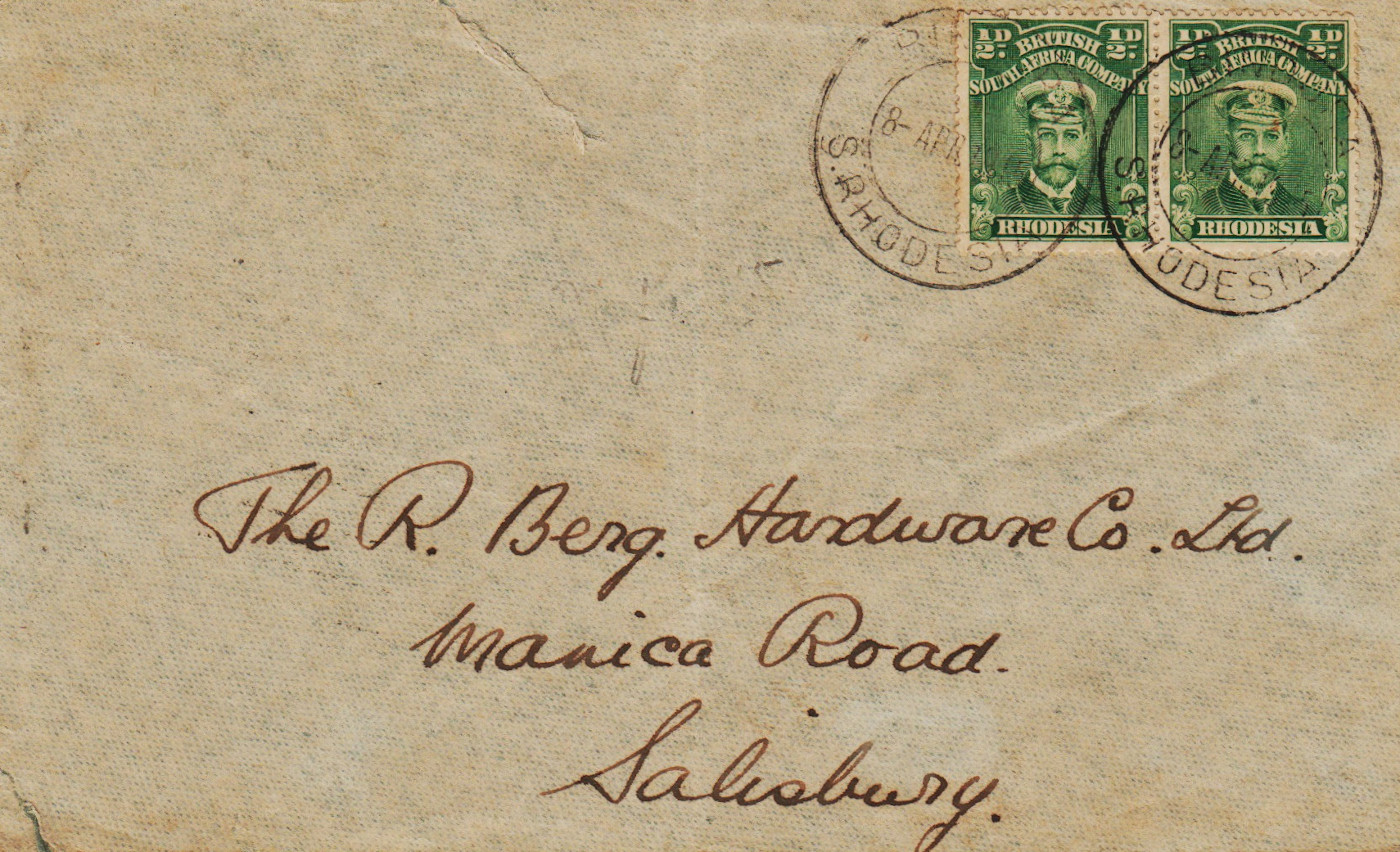 ½D. BRITISH ½D.
SOUTH AFRICA COMPANY
RHODESIA
½D. BRITISH ½D.
SOUTH AFRICA COMPANY
RHODESIA
8- APR
S. RHODESIA
S. RHODESIA
The R. Berg. Hardware Co. Ltd.
Manica Road.
Salisbury.